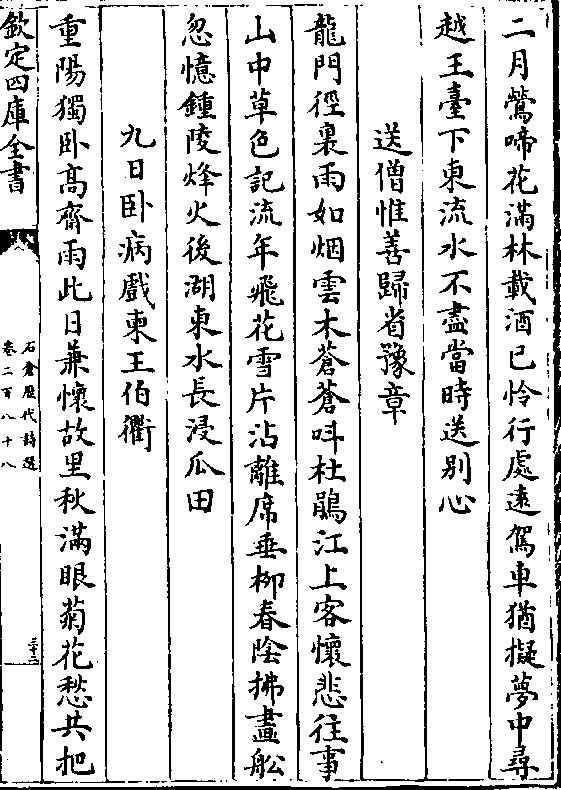 二月鶯啼花滿林載酒已怜行處逺駕車猶擬夢中尋
越王臺下東流水不盡當時送别心
送僧惟善歸省豫章
龍門徑裏雨如烟雲木蒼蒼呌杜鵑江上客懷悲往事
山中草色記流年飛花雪片沾離席垂栁春陰拂畫舩
忽憶鍾陵烽火後湖東水長浸瓜田
九日卧病戲柬王伯衢
重陽獨卧髙齋雨此日兼懷故里秋滿眼菊花愁共把
欽定四庫全書
石倉歴代詩選
卷二百八十八
三十二